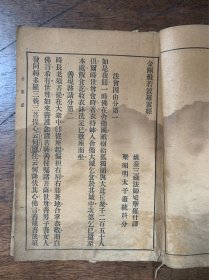 金剛般若波羅蜜經
姚秦三藏法師鳩摩羅什譯
梁昭明太子蕭統科分
法會因由分第一
如是我聞一時佛在舍衛國祇樹給孤獨園與大比丘衆千二百五十人
俱爾時世尊食時著衣持鉢入舍衛大城乞食於其城中次第乞已還至
本處飯食訖收衣鉢洗足已敷座而坐
善現啓請分第二
時長老須菩提在大衆中即從座起偏袒右肩右膝著地合掌恭敬而白
佛言希有世尊如來善護念諸菩薩善付囑諸菩薩世尊善男子善女人
發阿耨多羅三藐三菩提心云何應住云何降伏其心佛言善哉善哉須
金剛經